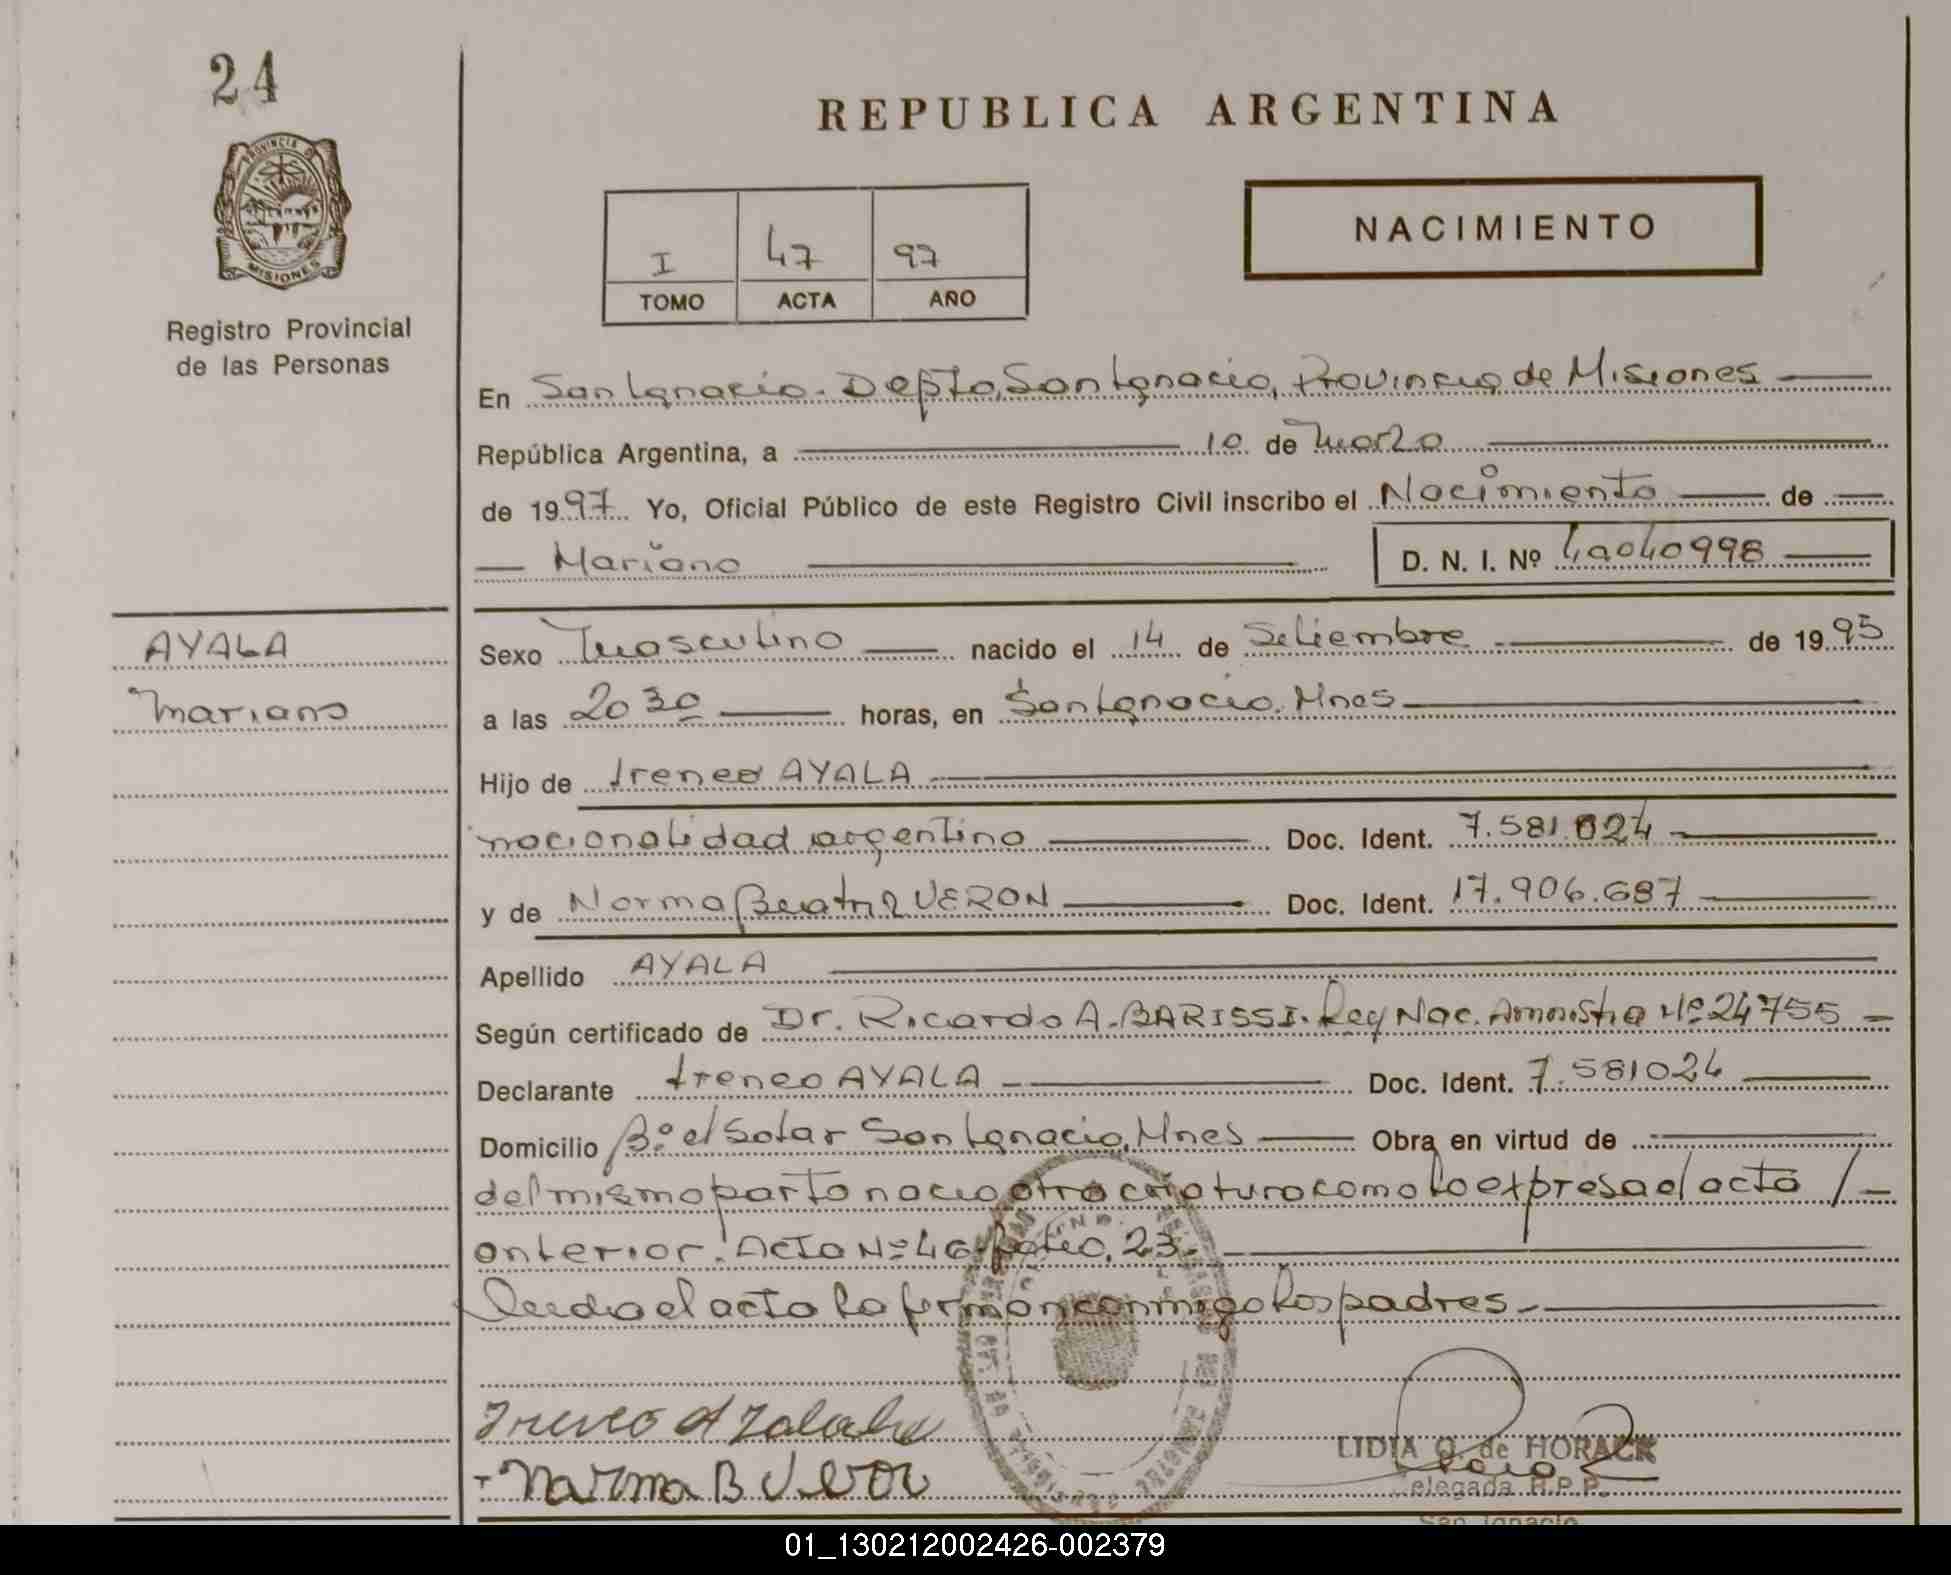 24
PROVINCIA DE
MISIONES
Registro Provincial
de las Personas
REPUBLICA ARGENTINA
I 47 97
TOMO ACTA AÑO
NACIMIENTO
En San Ignacio. Depto, San Ignacio, Provincia de Misiones
República Argentina, a 10 de Marzo
de 1997 Yo, Oficial Público de este Registro Civil inscribo el Nacimiento de
Mariano D. N. I. Nº 40040998
AYALA
Mariano
Sexo Masculino nacido el 14 de Setiembre de 1995
a las 20 30 horas, en San Ignacio, Mnes
Hijo de Ireneo AYALA
nacionalidad argentina Doc. Ident. 7.581.024
y de Norma Beatriz VERON Doc. Ident. 17.906.687
Apellido AYALA
Según certificado de Dr. Ricardo A. BARISSI. Ley Nac. Amnistia Nº 24755
Declarante Ireneo AYALA Doc. Ident. 7.581024
Domicilio Bº el Solar San Ignacio, Mnes Obra en virtud de
del mismo parto nacio otra criatura como lo expresa el acta /
anterior. Acta Nº 46 folio. 23.
Leida el acta la firman conmigo los padres.
Ireneo Ayala
Norma B Veron
LIDIA Q. de HORACK
Delegada R.P.P.
San Ignacio
01_130212002426-002379